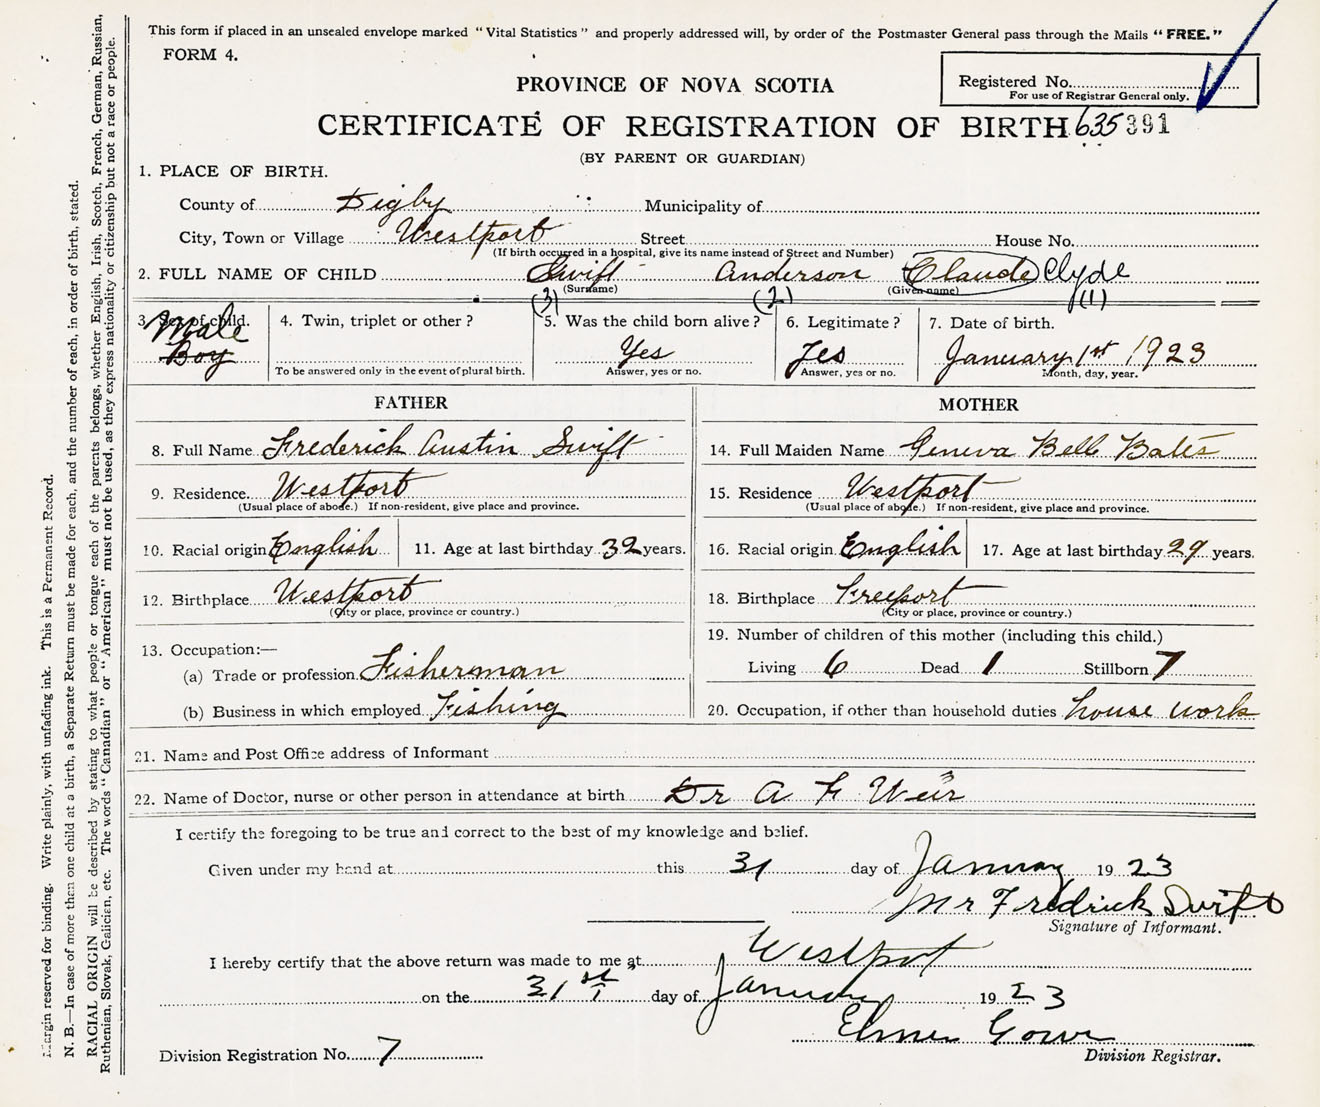 This form if placed in an unsealed envelope marked "Vital Statistics" and properly addressed will, by order of the Postmaster General pass through the Mails "FREE."
FORM 4.
PROVINCE OF NOVA SCOTIA
Registered No.
For use of Registrar General only.
CERTIFICATE OF REGISTRATION OF BIRTH 635391
(BY PARENT OR GUARDIAN)
1. PLACE OF BIRTH.
County of Digby Municipality of
City, Town or Village Westport Street House No.
(If birth occurred in a hospital, give its name instead of Street and Number)
2. FULL NAME OF CHILD Swift Anderson Claude Clyde
(Surname) (Given name)
(3) (2) (1)
3. Sex of child. Male Boy
4. Twin, triplet or other?
To be answered only in the event of plural birth.
5. Was the child born alive?
Yes
Answer, yes or no.
6. Legitimate?
Yes
Answer, yes or no.
7. Date of birth.
January 1st 1923
Month, day, year.
FATHER
8. Full Name Frederick Austin Swift
9. Residence. Westport
(Usual place of abode.) If non-resident, give place and province.
10. Racial origin English 11. Age at last birthday 32 years.
12. Birthplace Westport
(City or place, province or country.)
13. Occupation:—
(a) Trade or profession Fisherman
(b) Business in which employed Fishing
MOTHER
14. Full Maiden Name Geneva Bell Bates
15. Residence Westport
(Usual place of abode.) If non-resident, give place and province.
16. Racial origin English 17. Age at last birthday 29 years.
18. Birthplace Freeport
(City or place, province or country.)
19. Number of children of this mother (including this child.)
Living 6 Dead 1 Stillborn 7
20. Occupation, if other than household duties house work
21. Name and Post Office address of Informant
22. Name of Doctor, nurse or other person in attendance at birth Dr A F Weir
I certify the foregoing to be true and correct to the best of my knowledge and belief.
Given under my hand at this 31 day of January 19 23
Mr Fredrick Swift
Signature of Informant.
I hereby certify that the above return was made to me at Westport
on the 31st day of January 19 23
Elmer
Division Registrar.
Division Registration No. 7
Margin reserved for binding. Write plainly, with unfading ink. This is a Permanent Record.
N. B.—In case of more than one child at a birth, a Separate Return must be made for each, and the number of each, in order of birth, stated.
RACIAL ORIGIN will be described by stating to what people or tongue each of the parents belongs, whether English, Irish, Scotch, French, German, Russian,
Ruthenian, Slovak, Galician, etc. The words "Canadian" or "American" must not be used, as they express nationality or citizenship but not a race or people.